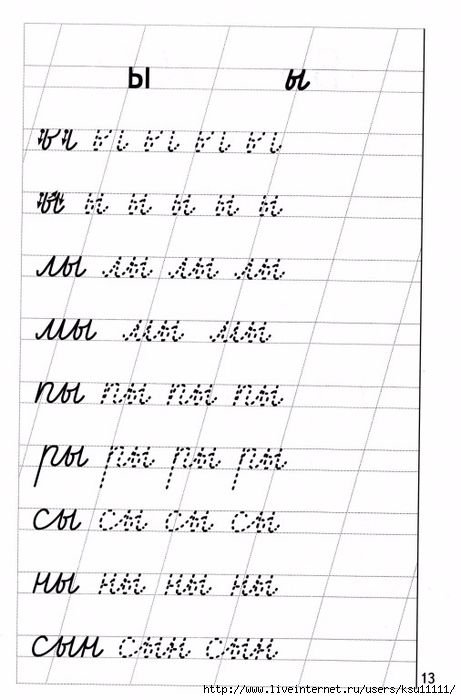 ы ы
ы ы ы ы ы
ы ы ы ы ы ы
лы лы лы лы
мы мы мы
пы пы пы пы
ры ры ры ры
сы сы сы сы
ны ны ны ны
сын сын сын
13
http://www.liveinternet.ru/users/ksu11111/